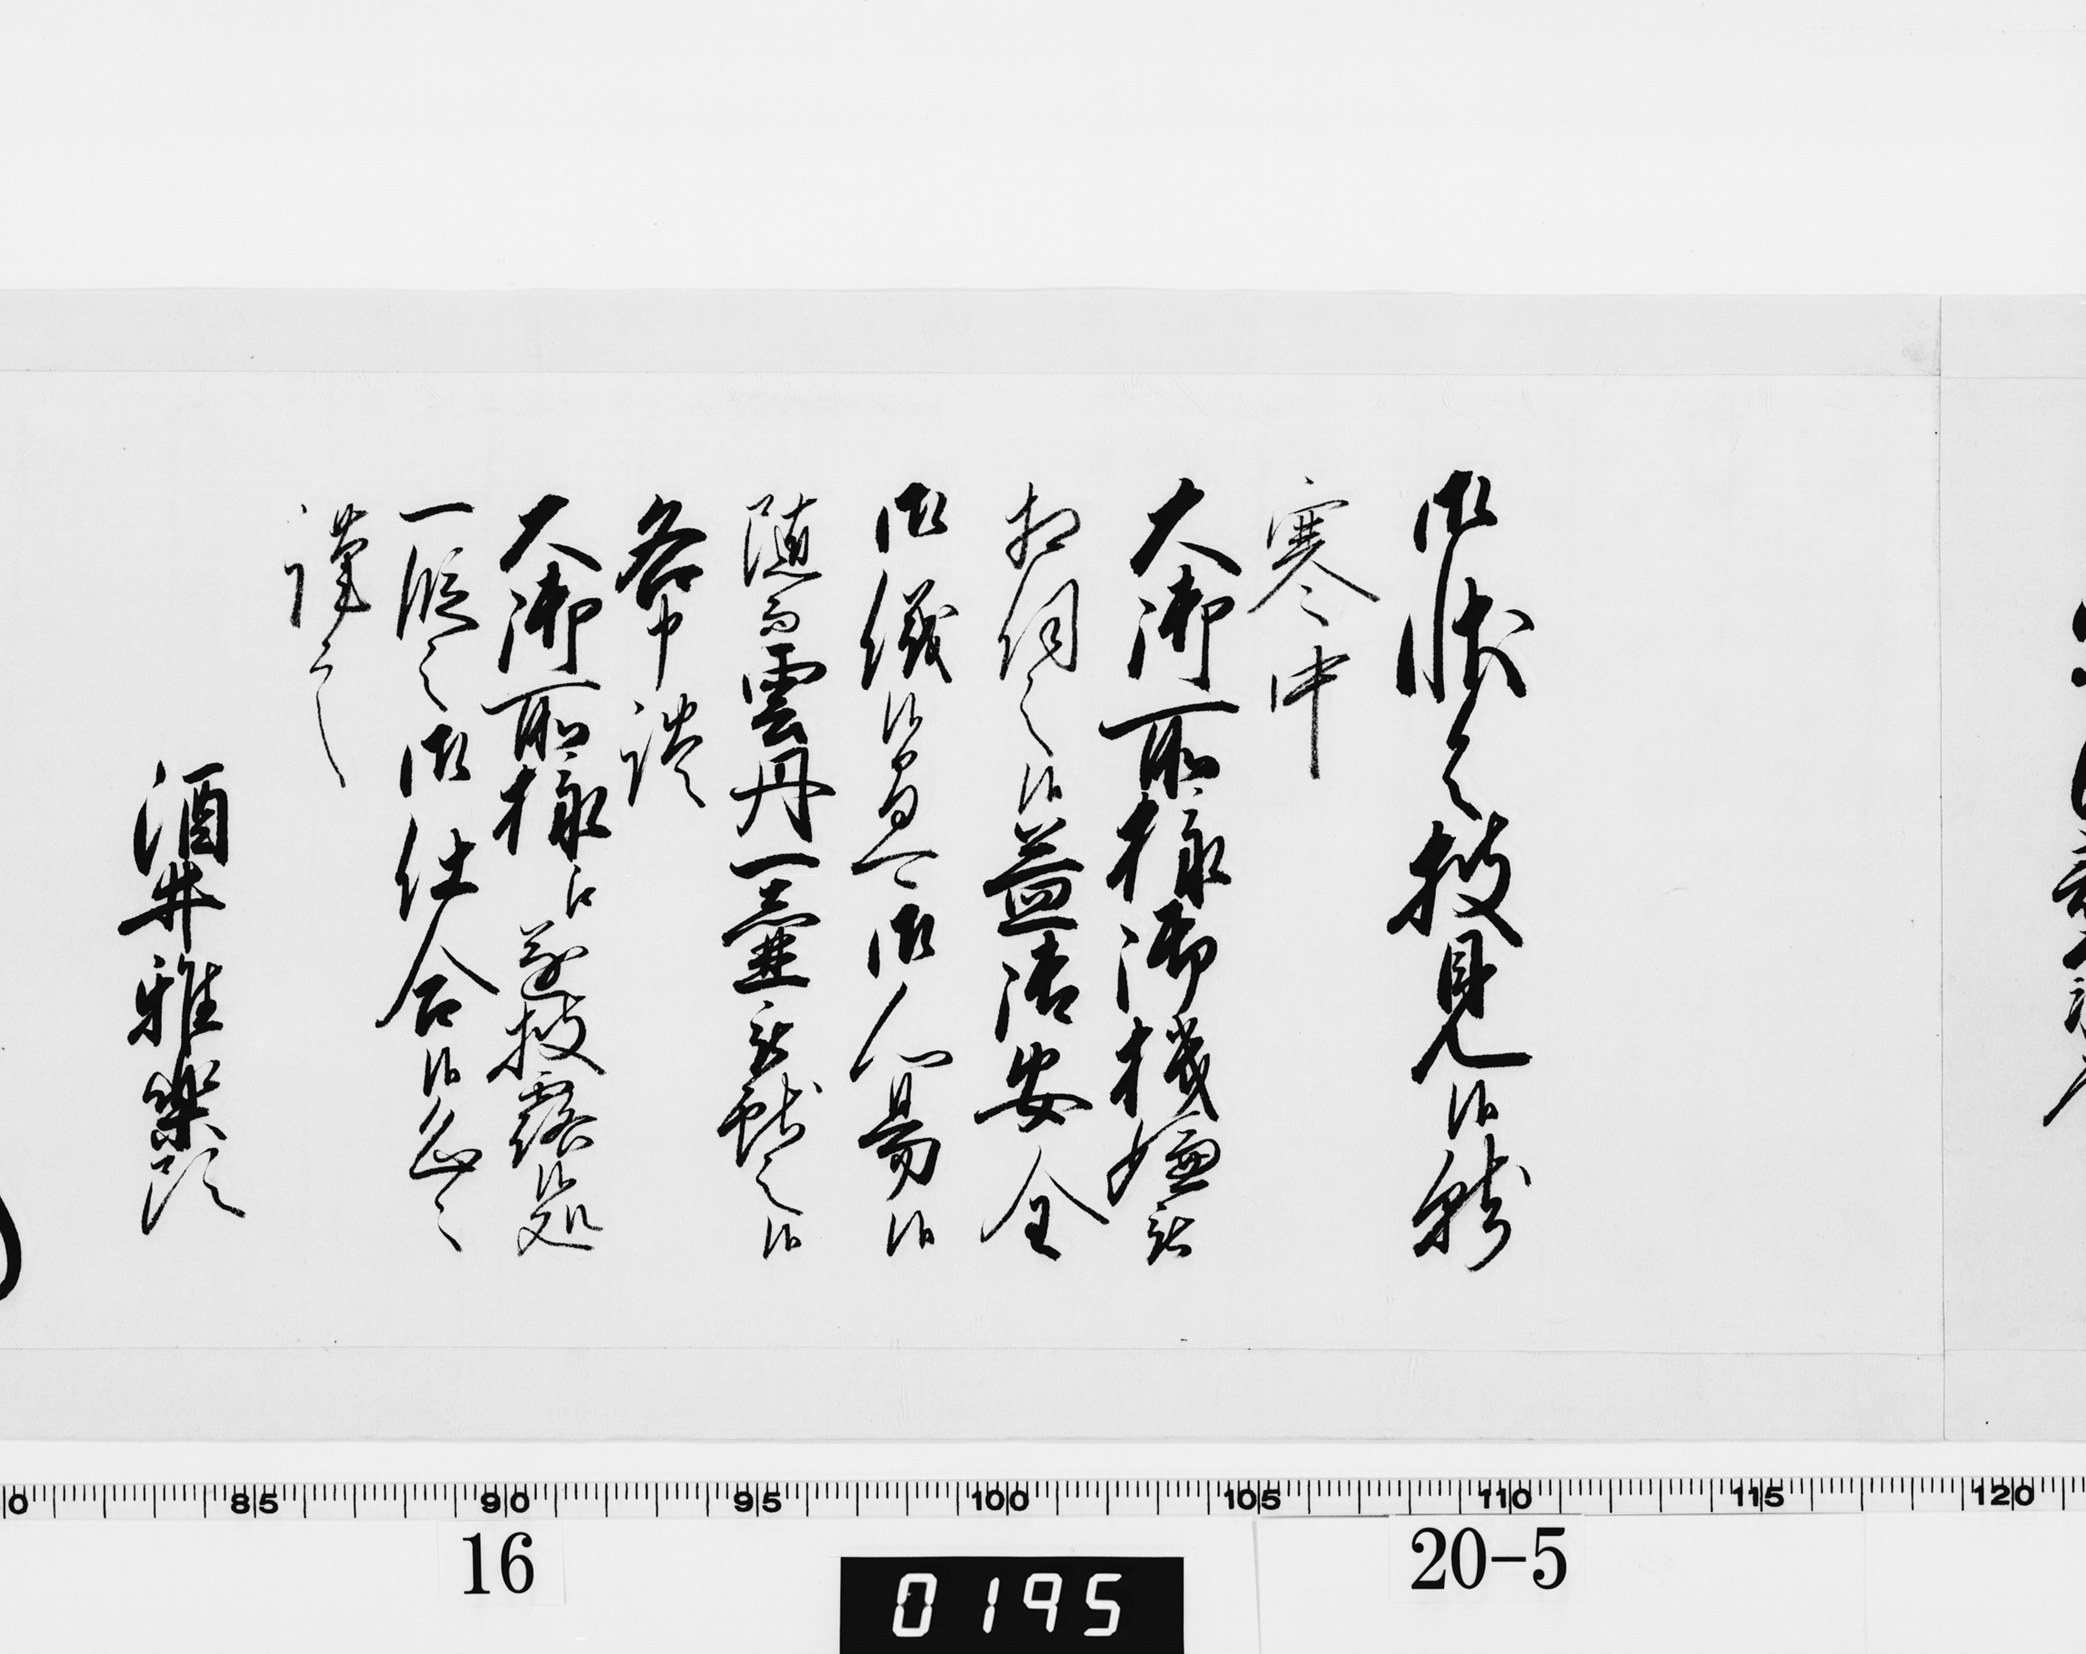 御状令披見候然者
寒中
大御所様御機嫌為
相伺之候益御安全
御儀候間可御心易候
随而雲丹一壺被献之候
各申談
大御所様江遂披露候処
一段之御仕合候恐々
謹言
酒井雅楽頭
85 90 95 100 105 110 115 120
16
20-5
0195